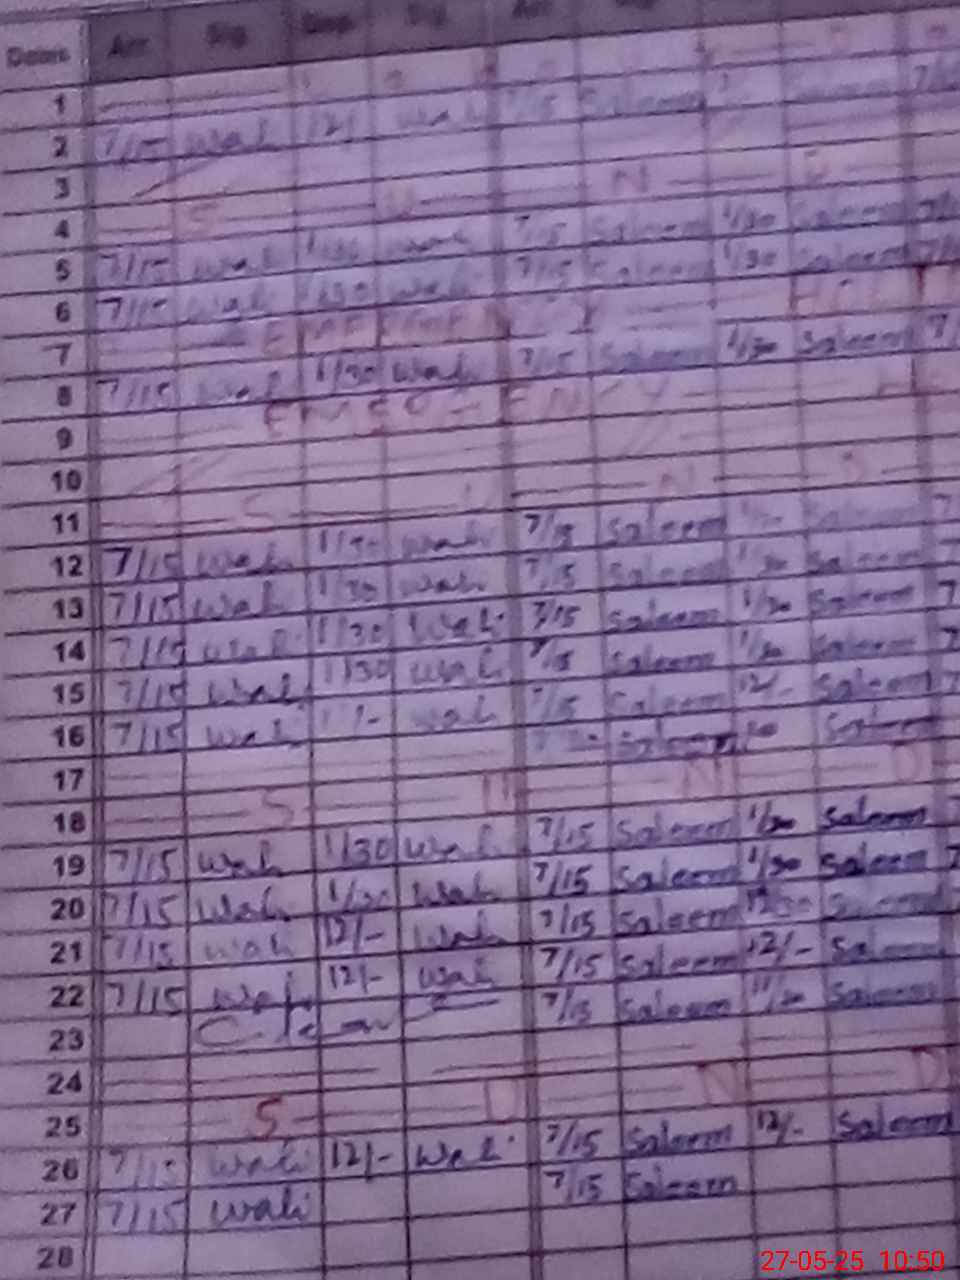 Dates Arr Sig Dep Sig Arr Sig
1
2 7/15 wali 12/- wali 7/15 Saleem Saleem
3
4 S U N D
5 7/15 wali 1/30 wali 7/15 Saleem 1/30 Saleem
6 7/15 wali 1/30 wali 7/15 Saleem 1/30 Saleem
7 EMERGENCY HOLI
8 7/15 wali 1/30 wali 7/15 Saleem 1/30 Saleem
9 EMERGENCY
10
11 S U N D
12 7/15 wali 1/30 wali 7/15 Saleem 1/30 Saleem
13 7/15 wali 1/30 wali 7/15 Saleem 1/30 Saleem
14 7/15 wali 1/30 wali 7/15 Saleem 1/30 Saleem
15 7/15 wali 1/30 wali 7/15 Saleem 1/30 Saleem
16 7/15 wali wali 7/15 Saleem 12/- Saleem
17 Saleem Saleem
18 S U N D
19 7/15 wali 1/30 wali 7/15 Saleem 1/30 Saleem
20 7/15 wali 1/30 wali 7/15 Saleem 1/30 Saleem
21 7/15 wali 12/- wali 7/15 Saleem Saleem
22 7/15 wali 12/- wali 7/15 Saleem 12/- Saleem
23 7/15 Saleem 11/30 Saleem
24
25 S U N D
26 7/15 wali 12/- wali 7/15 Saleem 12/- Saleem
27 7/15 wali 7/15 Saleem
28
27-05-25 10:50